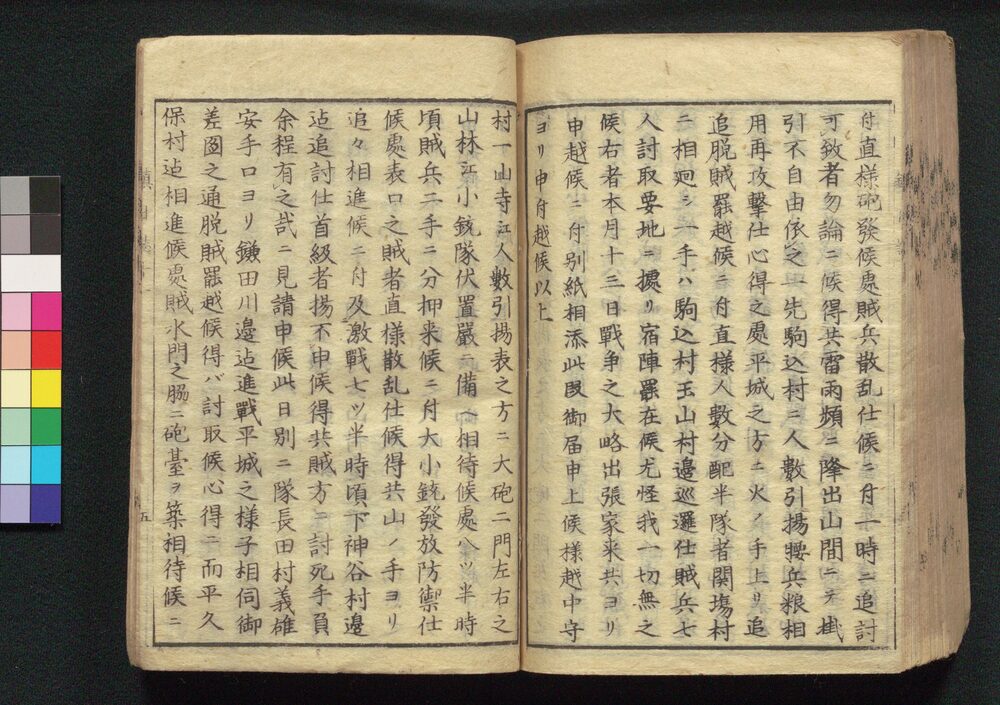 付直様砲發候處賊兵散乱仕候ニ付一時ニ追討
可致者勿論ニ候得共雷雨頻ニ降出山間ニテ掛
引不自由依之一先駒込村ニ人數引揚腰兵粮相
用再攻撃仕心得之處平城之方ニ火ノ手上リ追
追脱賊罷越候ニ付直様人數分配半隊者関場村
ニ相廻シ一手ハ駒込村玉山村邊巡邏仕賊兵七
人討取要地ニ據リ宿陣罷在候尤怪我一切無之
候右者本月十三日戰争之大略出張家来共ヨリ
申越候ニ付別紙相添此段御届申上候様越中守
ヨリ申付越候以上
村一山寺江人數引揚表之方ニ大砲二門左右之
山林江小銃隊伏置嚴ニ備ヘ相待候處八ツ半時
頃賊兵二手ニ分押来候ニ付大小銃發放防禦仕
候處表口之賊者直様散乱仕候得共山ノ手ヨリ
追々相進候ニ付及激戰七ツ半時頃下神谷村邊
迠追討仕首級者揚不申候得共賊方ニ討死手負
余程有之哉ニ見請申候此日別ニ隊長田村義雄
安手口ヨリ鎌田川邊迠進戰平城之様子相伺御
差圖之通脱賊罷越候得バ討取候心得ニ而平久
保村迠相進候處賊水門之脇ニ砲臺ヲ築相待候ニ
五